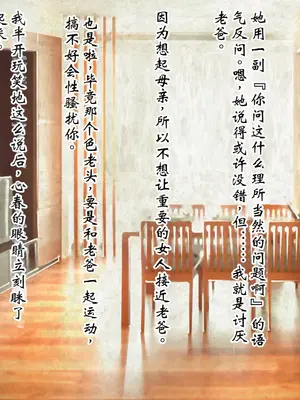 她用一副『你问这什么理所当然的问题啊』的语
气反问。嗯，她说得或许没错，但……我就是讨厌
老爸。
因为想起母亲，所以不想让重要的女人接近老爸。
也是啦，毕竟那个色老头，要是和老爸一起运动，
搞不好会性骚扰你。
我半开玩笑地这么说后，心春的眼睛立刻眯了
起来。